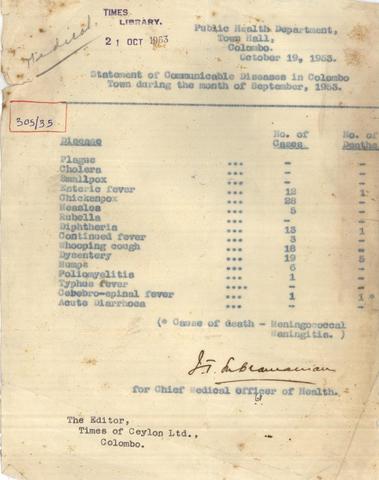 TIMES
LIBRARY.
21 OCT 1963
Medical
Public Health Department,
Town Hall,
Colombo.
October 19, 1953.
Statement of Communicable Diseases in Colombo
Town during the month of September, 1953.
305/35
Disease No. of Cases No. of Deaths
Plague ... - -
Cholera ... - -
Smallpox ... - -
Enteric fever ... 12 1
Chickenpox ... 28 -
Measles ... 5 -
Rubella ... - -
Diphtheria ... 13 1
Continued fever ... 3 -
Whooping cough ... 18 -
Dysentery ... 19 5
Mumps ... 6 -
Poliomyelitis ... 1 -
Typhus fever .... - -
Cebebro-spinal fever ... 1 1 *
Acute Diarrhoea ... - -
(* Cause of death - Meningococcal
Meningitis. )
for Chief Medical Officer of Health.
The Editor,
Times of Ceylon Ltd.,
Colombo.